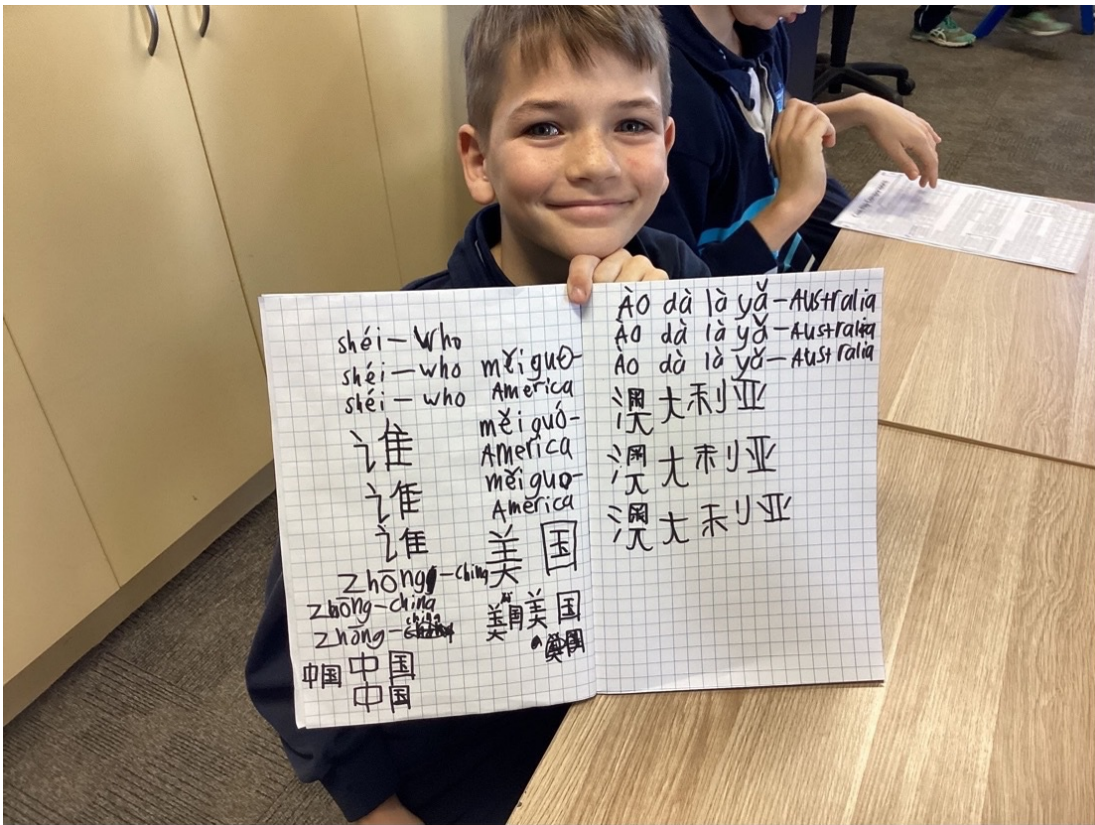 shéi – Who
shéi – who
shéi – who
谁
谁
谁
zhōng – China
zhōng – china
zhōng – china
中国 中国
中国
měi guo –
America
měi guó –
America
měi guo –
America
美国
美国 美国
Ào dà là yǎ – Australia
Ào dà là yǎ – Australia
Ào dà là yǎ – Australia
澳大利亚
澳大利亚
澳大利亚